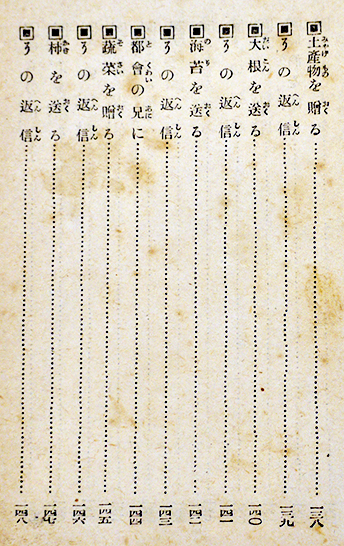 ▣土産物を贈る……一三八
▣その返信……一三九
▣大根を送る……一四〇
▣その返信……一四一
▣海苔を送る……一四二
▣その返信……一四三
▣都會の兄に……一四四
▣蔬菜を贈る……一四五
▣その返信……一四六
▣柿を送る……一四七
▣その返信……一四八